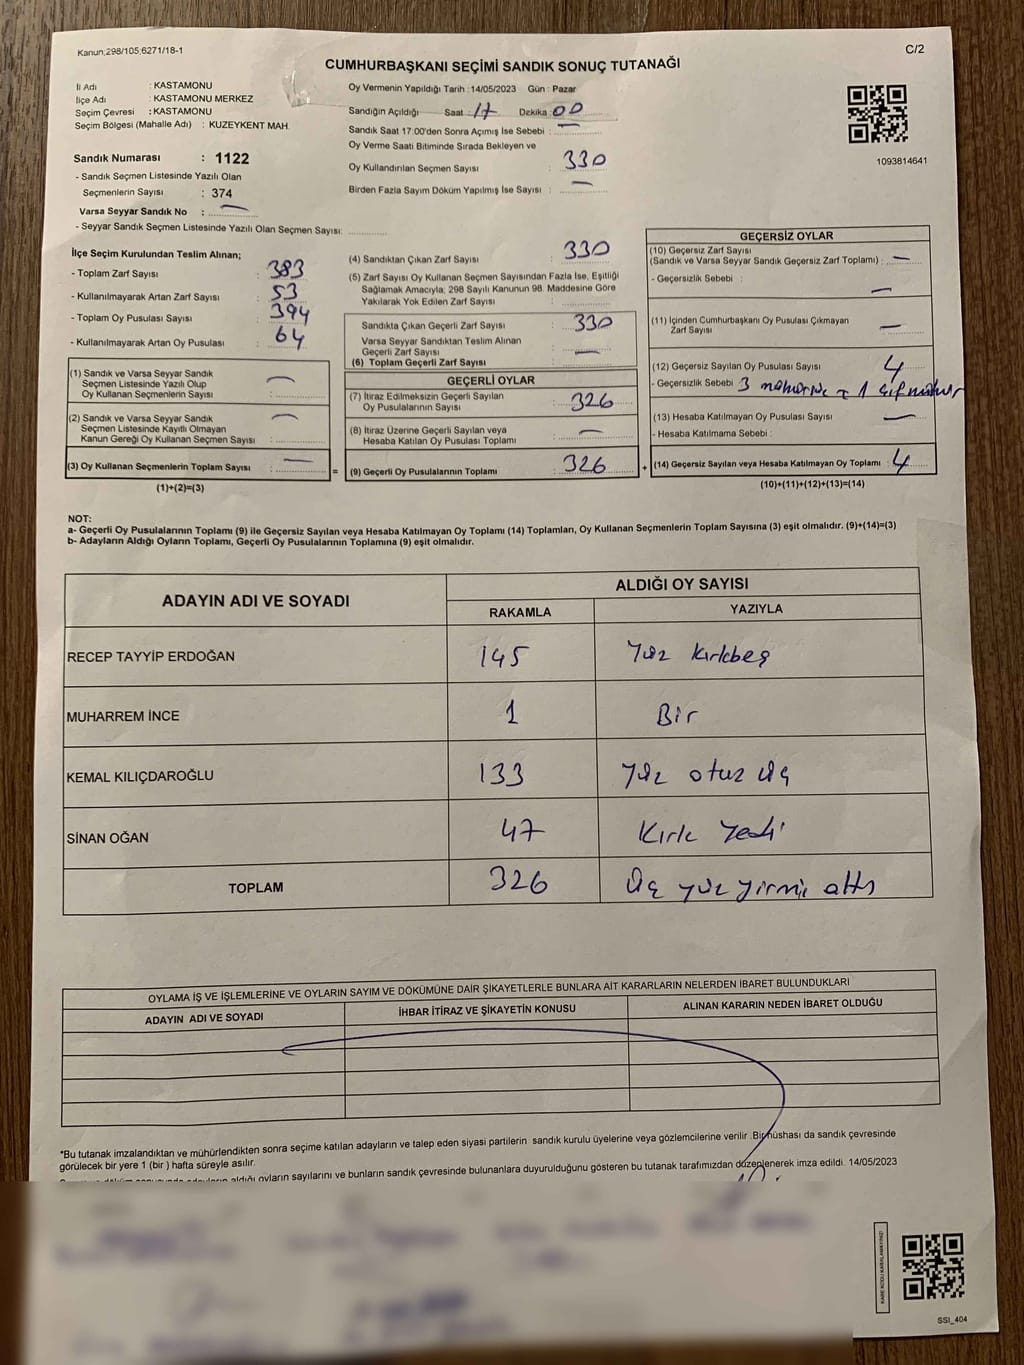 Kanun;298/105,6271/18-1
C/2
CUMHURBAŞKANI SEÇİMİ SANDIK SONUÇ TUTANAĞI
İl Adı : KASTAMONU
İlçe Adı : KASTAMONU MERKEZ
Seçim Çevresi : KASTAMONU
Seçim Bölgesi (Mahalle Adı) : KUZEYKENT MAH.
Sandık Numarası : 1122
- Sandık Seçmen Listesinde Yazılı Olan
Seçmenlerin Sayısı : 374
Varsa Seyyar Sandık No : —
- Seyyar Sandık Seçmen Listesinde Yazılı Olan Seçmen Sayısı: ............
Oy Vermenin Yapıldığı Tarih : 14/05/2023 Gün : Pazar
Sandığın Açıldığı Saat 17 Dekika 00
Sandık Saat 17:00'den Sonra Açımış İse Sebebi : —
Oy Verme Saati Bitiminde Sırada Bekleyen ve
Oy Kullandırılan Seçmen Sayısı : 330
Birden Fazla Sayım Döküm Yapılmış İse Sayısı : —
1093814641
İlçe Seçim Kurulundan Teslim Alınan;
- Toplam Zarf Sayısı : 383
- Kullanılmayarak Artan Zarf Sayısı : 53
- Toplam Oy Pusulası Sayısı : 394
- Kullanılmayarak Artan Oy Pusulası : 64
(1) Sandık ve Varsa Seyyar Sandık
Seçmen Listesinde Yazılı Olup
Oy Kullanan Seçmenlerin Sayısı : —
(2) Sandık ve Varsa Seyyar Sandık
Seçmen Listesinde Kayıtlı Olmayan
Kanun Gereği Oy Kullanan Seçmen Sayısı : —
(3) Oy Kullanan Seçmenlerin Toplam Sayısı : —
(1)+(2)=(3)
(4) Sandıktan Çıkan Zarf Sayısı : 330
(5) Zarf Sayısı Oy Kullanan Seçmen Sayısından Fazla İse, Eşitliği
Sağlamak Amacıyla; 298 Sayılı Kanunun 98. Maddesine Göre
Yakılarak Yok Edilen Zarf Sayısı :
Sandıkta Çıkan Geçerli Zarf Sayısı : 330
Varsa Seyyar Sandıktan Teslim Alınan
Geçerli Zarf Sayısı : —
(6) Toplam Geçerli Zarf Sayısı
GEÇERLİ OYLAR
(7) İtiraz Edilmeksizin Geçerli Sayılan
Oy Pusulalarının Sayısı : 326
(8) İtiraz Üzerine Geçerli Sayılan veya
Hesaba Katılan Oy Pusulası Toplamı : —
= (9) Geçerli Oy Pusulalarının Toplamı : 326
GEÇERSİZ OYLAR
(10) Geçersiz Zarf Sayısı
(Sandık ve Varsa Seyyar Sandık Geçersiz Zarf Toplamı) : —
- Geçersizlik Sebebi : —
(11) İçinden Cumhurbaşkanı Oy Pusulası Çıkmayan
Zarf Sayısı —
(12) Geçersiz Sayılan Oy Pusulası Sayısı : 4
- Geçersizlik Sebebi 3 1 çif mühür
(13) Hesaba Katılmayan Oy Pusulası Sayısı : —
- Hesaba Katılmama Sebebi :
+ (14) Geçersiz Sayılan veya Hesaba Katılmayan Oy Toplamı : 4
(10)+(11)+(12)+(13)=(14)
NOT:
a- Geçerli Oy Pusulalarının Toplamı (9) ile Geçersiz Sayılan veya Hesaba Katılmayan Oy Toplamı (14) Toplamları, Oy Kullanan Seçmenlerin Toplam Sayısına (3) eşit olmalıdır. (9)+(14)=(3)
b- Adayların Aldığı Oyların Toplamı, Geçerli Oy Pusulalarının Toplamına (9) eşit olmalıdır.
ADAYIN ADI VE SOYADI
ALDIĞI OY SAYISI
RAKAMLA YAZIYLA
RECEP TAYYİP ERDOĞAN 145 Yüz kırkbeş
MUHARREM İNCE 1 Bir
KEMAL KILIÇDAROĞLU 133 Yüz otuz üç
SİNAN OĞAN 47 Kırk Yedi
TOPLAM 326 Üç yüz yirmi altı
OYLAMA İŞ VE İŞLEMLERİNE VE OYLARIN SAYIM VE DÖKÜMÜNE DAİR ŞİKAYETLERLE BUNLARA AİT KARARLARIN NELERDEN İBARET BULUNDUKLARI
ADAYIN ADI VE SOYADI İHBAR İTİRAZ VE ŞİKAYETİN KONUSU ALINAN KARARIN NEDEN İBARET OLDUĞU
*Bu tutanak imzalandıktan ve mühürlendikten sonra seçime katılan adayların ve talep eden siyasi partilerin sandık kurulu üyelerine veya gözlemcilerine verilir. Bir nüshası da sandık çevresinde
görülecek bir yere 1 (bir ) hafta süreyle asılır.
aldığı oyların sayılarını ve bunların sandık çevresinde bulunanlara duyurulduğunu gösteren bu tutanak tarafımızdan düzenlenerek imza edildi. 14/05/2023
KARE KODU KARALAMAYINIZ!
SSI_404